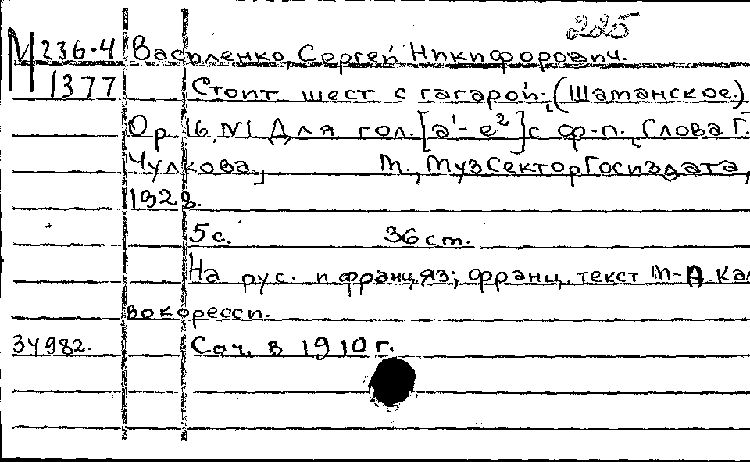 225
М 236-4 Василенко, Сергей Никифорович.
1377 Стоит шест с гагарой. (Шаманское.)
Ор. 16, №1 Для гол. [a¹-e²] с ф-п. [Слова Г.
Чулкова.] М., МузСекторГосиздата,
1928.
5с. 36 ст.
На рус. и франц. яз; франц. текст М-Д Кал
вокоресси.
34982. Соч. в 1910 г.